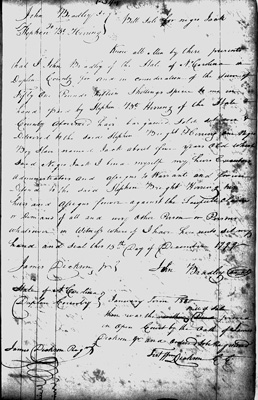 John Bradley
To Bill Sale for negro Jack
Stephen Bt. Herring
Know all Men by these presents
that I John Bradley of the State of N Carolina &
Duplin County for and in consideration of the sum of
Fifty six Pounds Shillings Specie to me in
hand paid by Stephen Bt. Herring of the State &
County aforesaid have bargained sold &
Delivered to the said Stephen Bright Herring one Negro
Boy Slave named Jack about five years old which
said Negro Jack I bind myself my heirs Executors
Administrators and assigns to Warrant and forever
Defend to the said Stephen Bright Herring his
heirs and assigns forever against the lawful claims
or Demands of all and every other Person or Persons
whatsoever in Witness whereof I have hereunto set my
hand and Seal the 13th Day of December
James Dickson Jr John Bradley
State of No Carolina
Duplin County January Term
then was the
in Open Court by the Oath of James
Dickson Jr. and Ordered to be registered
Test Wm Dickson C C
James Dickson Reg